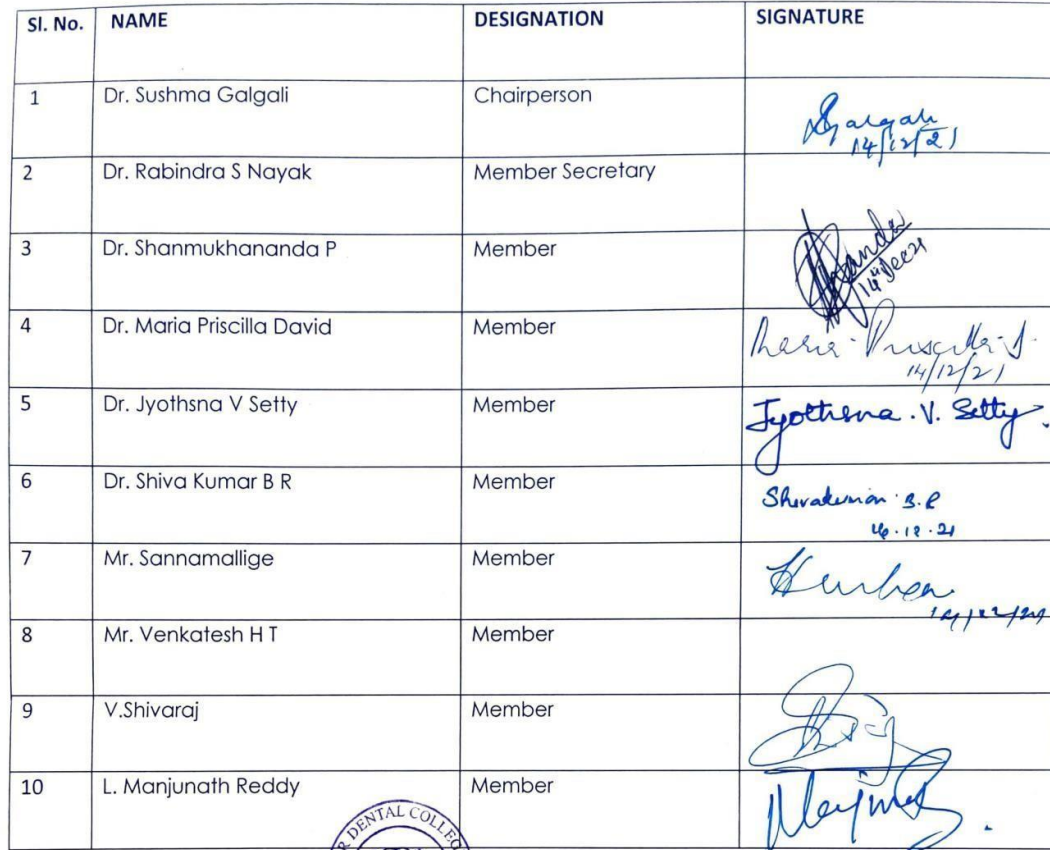 Sl. No. NAME DESIGNATION SIGNATURE
1 Dr. Sushma Galgali Chairperson Galgali
14/12/21
2 Dr. Rabindra S Nayak Member Secretary
3 Dr. Shanmukhananda P Member
14th Dec 21
4 Dr. Maria Priscilla David Member Maria Priscilla D.
14/12/21
5 Dr. Jyothsna V Setty Member Jyothsna . V. Setty.
6 Dr. Shiva Kumar B R Member Shivakumar B.R
7 Mr. Sannamallige Member
8 Mr. Venkatesh H T Member
9 V.Shivaraj Member
10 L. Manjunath Reddy Member
R DENTAL COLLEG